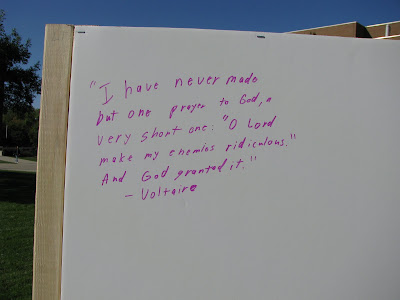 "I have never made
but one prayer to God, a
very short one: "O Lord
make my enemies ridiculous."
And God granted it."
- Voltaire